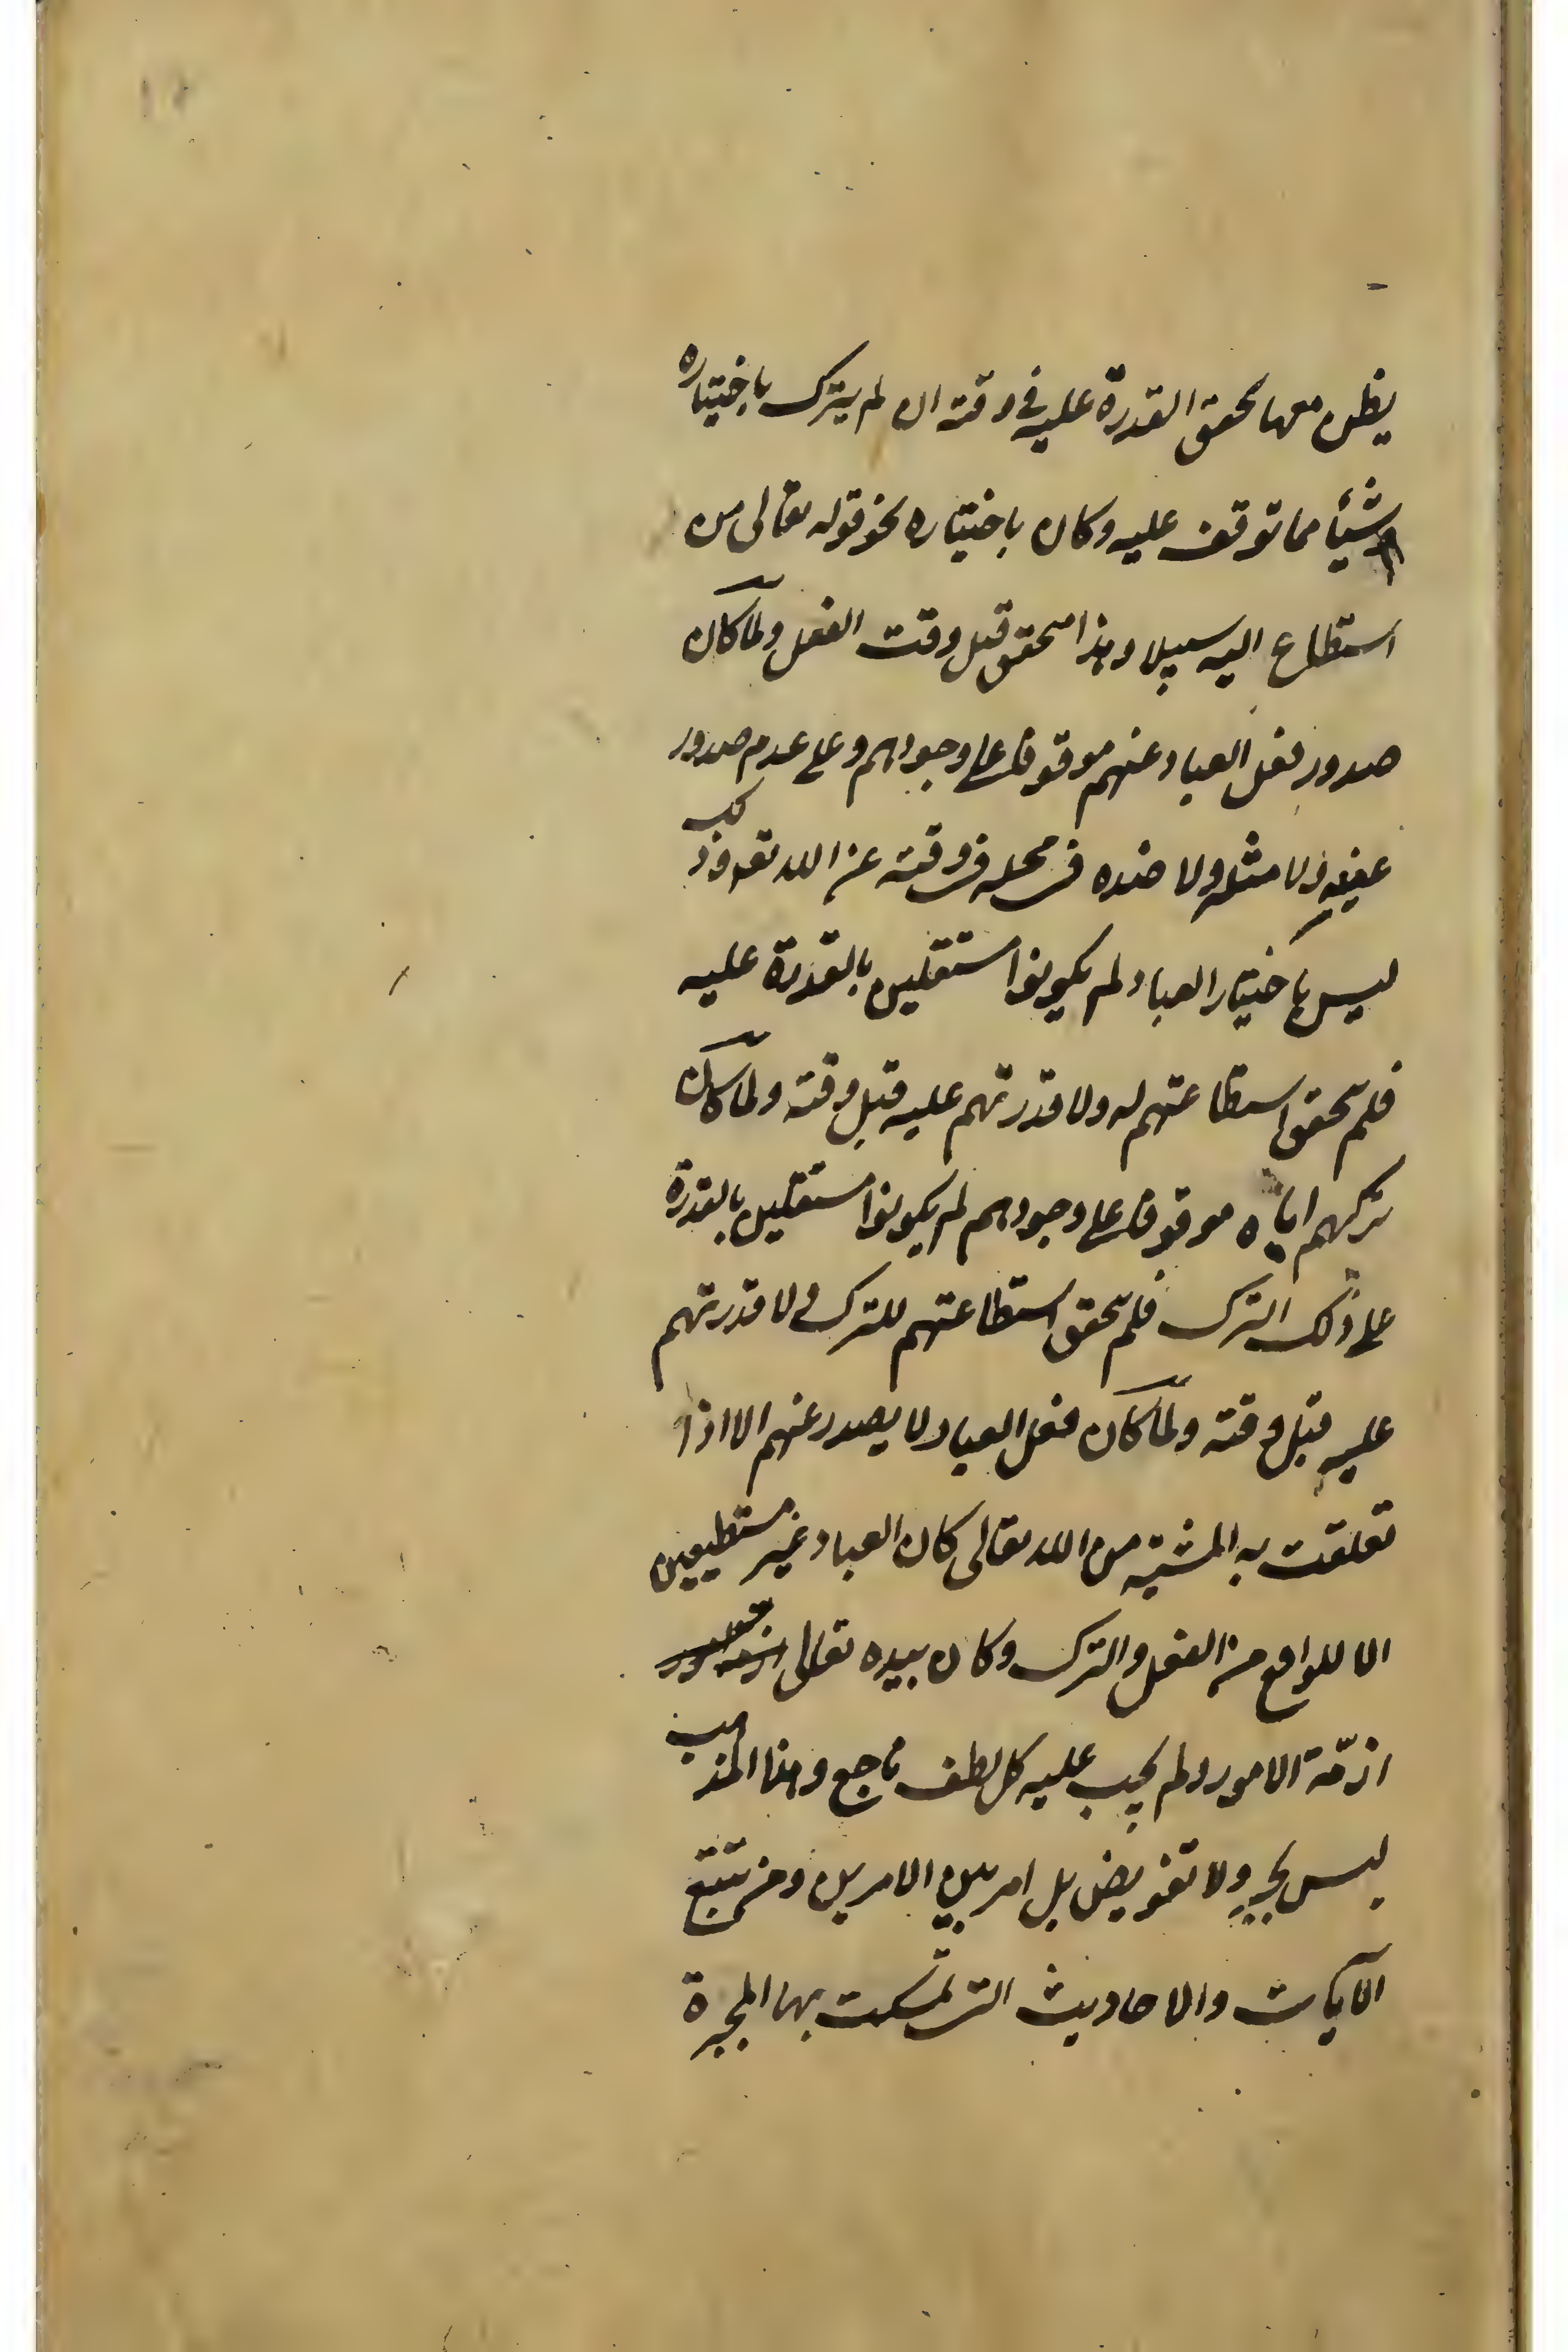 يظن معها تحقق القدرة عليه في وقته ان لم يترك باختياره
شيئا مما توقف عليه وكان باختياره نحو قوله تعالى من
استطاع اليه سبيلا وهذا متحقق قبل وقت الفعل ولما كان
صدور فعل العباد عنهم موقوفا على وجودهم وعلى عدم صدور
عينه ولا مثله ولا ضده في محله في وقته عن الله تعه وذلك
ليس باختيار العباد لم يكونوا مستقلين بالقدرة عليه
فلم تتحقق استطاعتهم له ولا قدرتهم عليه قبل وقته ولما كان
تركهم اياه موقوفا على وجودهم لم يكونوا مستقلين بالقدرة
على ذلك الترك فلم تتحقق استطاعتهم للترك ولا قدرتهم
عليه قبل وقته ولما كان فعل العباد لا يصدر عنهم الا اذا
تعلقت به المشية من الله تعالى كان العباد غير مستطيعين
الا للواقع من الفعل والترك وكان بيده تعالى
ازمّة الامور ولم يجب عليه كل لطف ناجع وهذا المذهب
ليس بجبر ولا تفويض بل امر بين الامرين ومن تتبع
الآيات والاحاديث التي تمسكت بها المجبرة